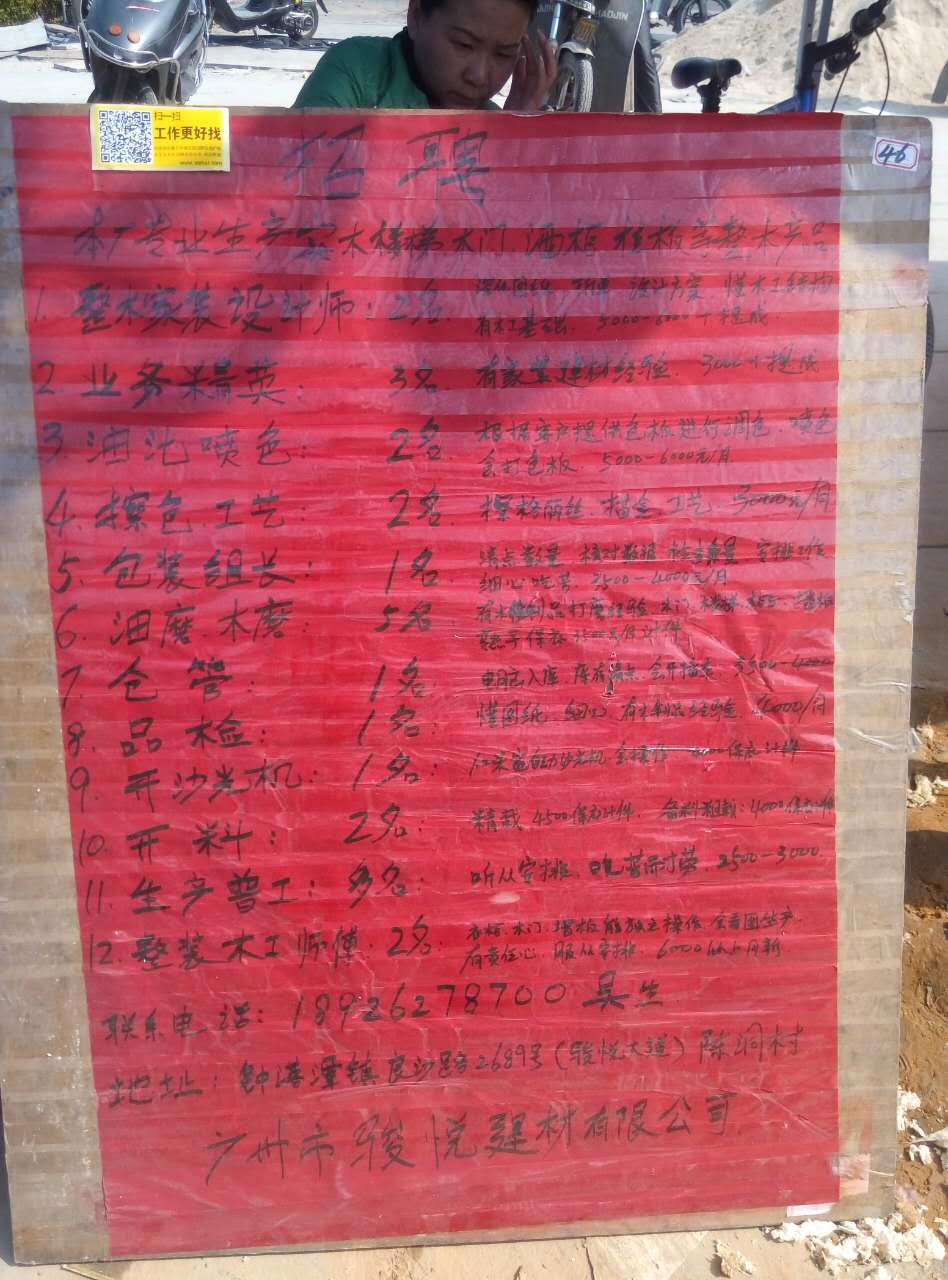 扫一扫
工作更好找
46
招聘
本厂专业生产实木楼梯 木门 酒柜 柱板等整木产品
1. 整木家装设计师: 2名 深化图纸 设计方案 懂木工结构
有木工基础. 5000-6000+提成
2. 业务精英: 3名 有家装建材经验. 3000+提成
3. 油沱喷色: 2名. 根据客户提供色板进行调色. 喷色
会打色板. 5000-6000元/月
4. 擦色工艺: 2名. 工艺 5000元/月
5. 包装组长: 1名. 清点数量 核对数据 检查质量 安排工作
细心吃苦. 2500-4000元/月
6. 油磨.木磨: 5名. 有木制品打磨经验 木门. 楼梯. 墙板
熟手保底 3500元/月 计件
7. 仓管: 1名: 电脑入库. 库存清点. -4000
8. 品检: 1名: 懂图纸. 细心. 有木制品经验. 4000/月
9. 开沙光机: 1名: 自动沙光机 会操作 保底计件
10. 开料: 2名: 精裁 4500保底计件. 备料粗裁: 4000保底计件
11. 生产普工: 多名: 听从安排. 吃苦耐劳. 2500-3000.
12. 整装木工师傅: 2名: 衣柜.木门.墙板能独立操作. 会看图生产.
有责任心. 服从安排. 6000以上月薪.
联系电话: 18926278700 吴生
地址: 钟落潭镇良沙路2689号(骏悦大道)陈洞村
广州市骏悦建材有限公司